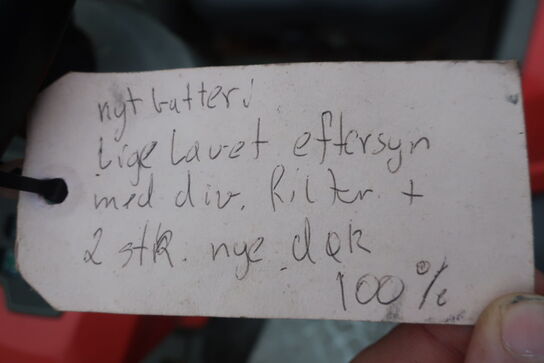 nyt batteri
Lige lavet eftersyn
med div. filter +
2 stk. nye dæk
100%